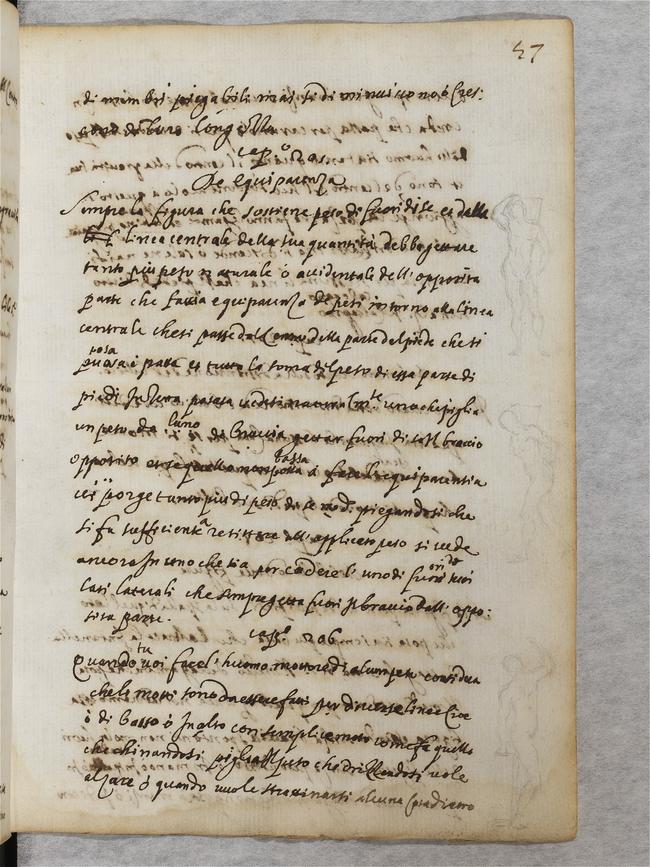 47
di membri piegabili mai si diminuiscono o Cres:
scono di loro longezza
cap.º 205
De Equiparenza
Sempre la figura che sostiene peso di fuori di se et dalla
linea centrale della sua quantità debbe gettare
tanto piu peso naturale ò accidentale dell' opposita
parte che faccia equiparenza de pesi intorno alla linea
centrale che si parte dal Centro della parte del piede che si
posa
i passa et tutto la soma del peso di essa parte di
piedi vedesi naturalmte uno che piglia
un peso da luno de bracci gettar fuori di se il braccio
opposito et se quello non basta à fare l'equiparentia
ui porge tanto piu di peso di se mod. piegandosi che
si fa sufficiente à resistere all' applicato peso si vede
ancora In uno che sia per cadere l' uno di suoi
lati laterali che Sempre getta fuori il braccio dall' oppo:
sita parte.
cap.º 206
Quando tu voi fare l' huomo motore di alcun peso considera
che li moti sono da essere fatti per diverse linee Cioe
ò di basso ò In alto con semplice moto come fa quello
che chinandosi piglia il peso che drizzandosi vole
alzare ò quando vuole strassinarsi alcuna Cosa dietro